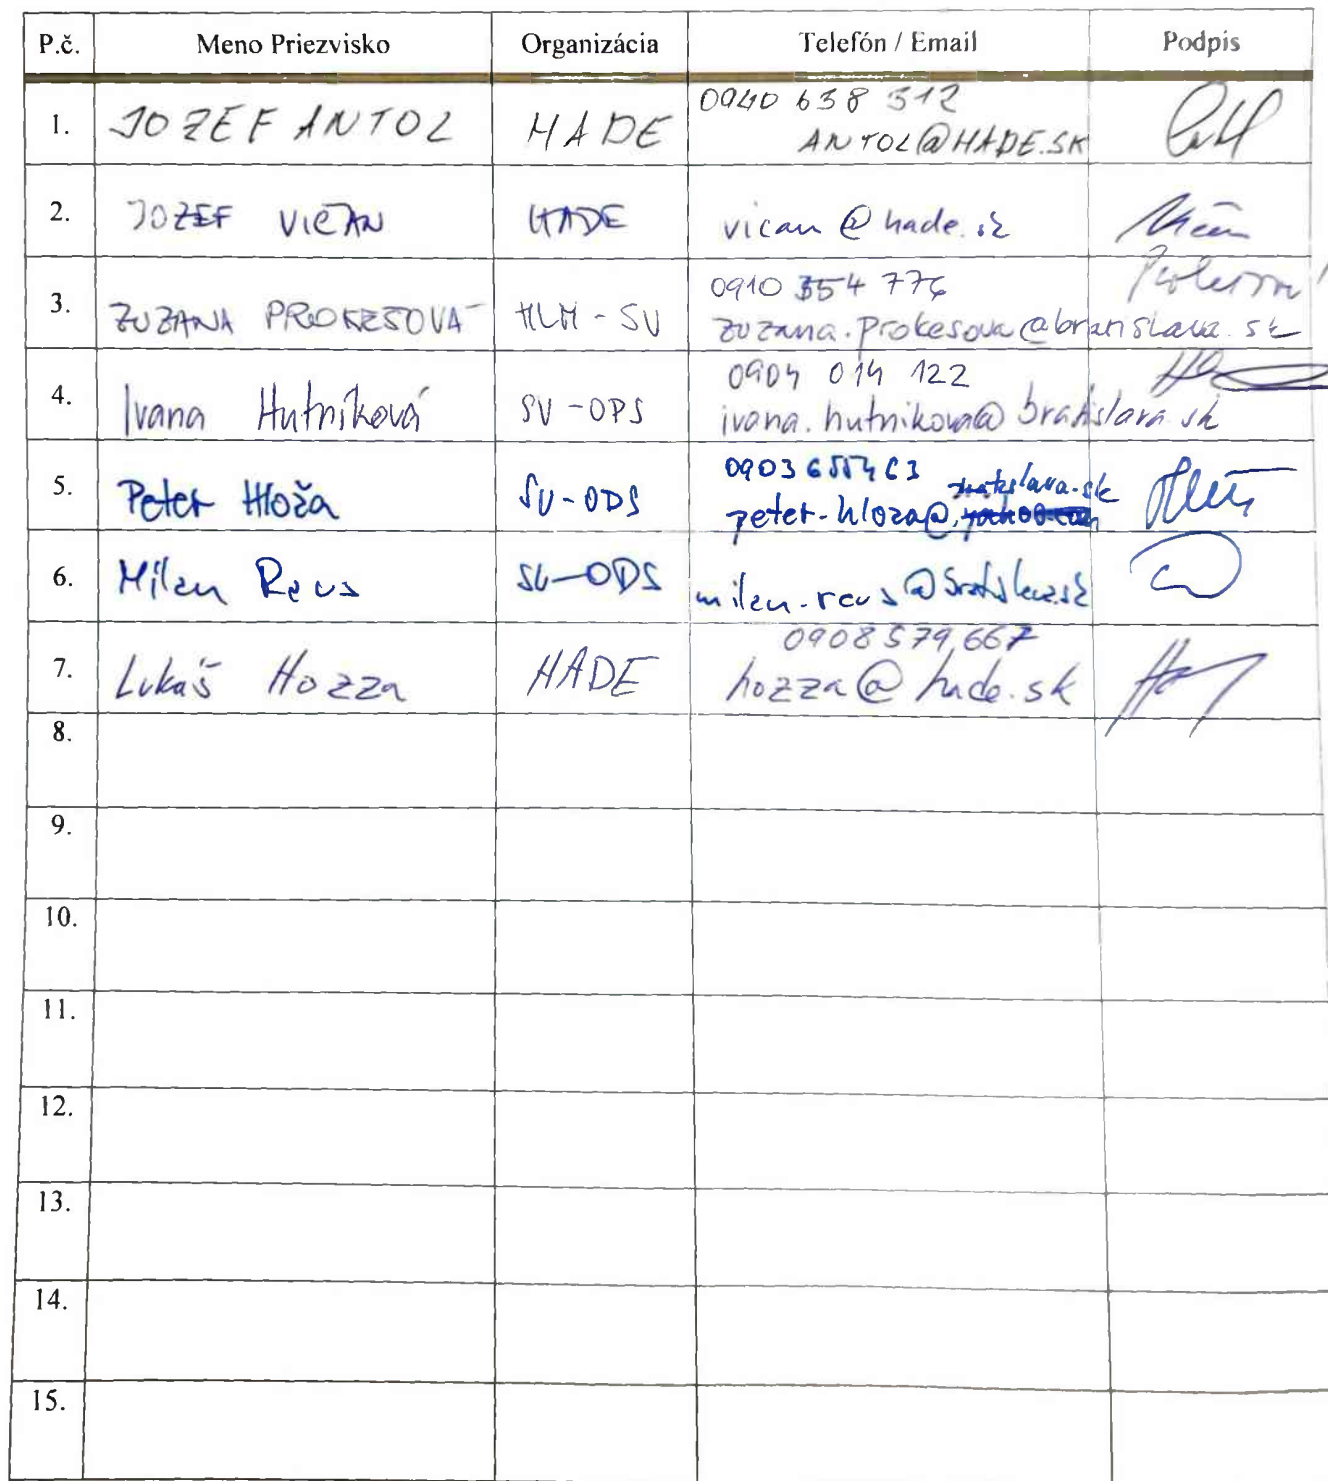 P.č. Meno Priezvisko Organizácia Telefón / Email Podpis
1. JOZEF ANTOL HADE 0940 638 312
ANTOL@HADE.SK
2. JOZEF VIČAN HADE vican@hade.sk
3. ZUZANA PROKEŠOVÁ HLM - SV 0910 354 776
zuzana.prokesova@bratislava.sk
4. Ivana Hutníková SV - OPS 0904 014 122
ivana.hutnikova@bratislava.sk
5. Peter Hloža SV - ODS 0903655463
bratislava.sk
peter.hloza@yahoo.com
6. Milan Reus SV - ODS milan.reus@bratislava.sk
7. Lukáš Hozza HADE 0908 579 667
hozza@hade.sk
8.
9.
10.
11.
12.
13.
14.
15.